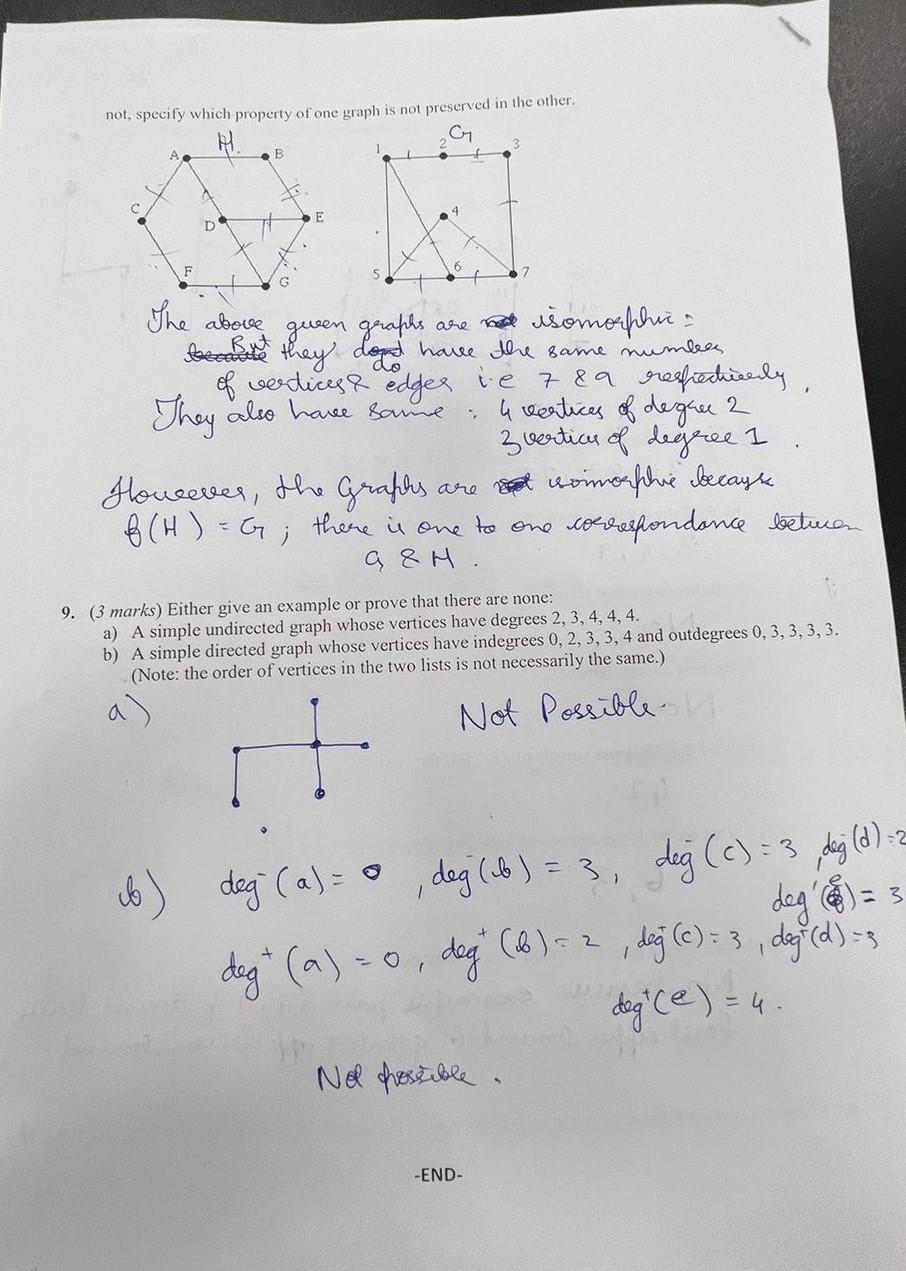 not, specify which property of one graph is not preserved in the other.
H.
G
A
B
C
D
E
F
G
1
2
3
4
5
6
7
The above given graphs are isomorphic :
But they do have the same number
of vertices & edges i.e 7 & 9 respectively,
They also have same : 4 vertices of degree 2
3 vertices of degree 1 .
However, the Graphs are isomorphic because
f(H) = G ; there is one to one correspondance between
G & H .
9. (3 marks) Either give an example or prove that there are none:
a) A simple undirected graph whose vertices have degrees 2, 3, 4, 4, 4.
b) A simple directed graph whose vertices have indegrees 0, 2, 3, 3, 4 and outdegrees 0, 3, 3, 3, 3.
(Note: the order of vertices in the two lists is not necessarily the same.)
a) Not Possible.
b) deg⁻(a) = 0 , deg⁻(b) = 3, deg⁻(c) = 3 , deg⁻(d) = 2
deg⁻(e) = 3
deg⁺(a) = 0 , deg⁺(b) = 2 , deg⁺(c) = 3 , deg⁺(d) = 3
deg⁺(e) = 4 .
Not possible .
-END-